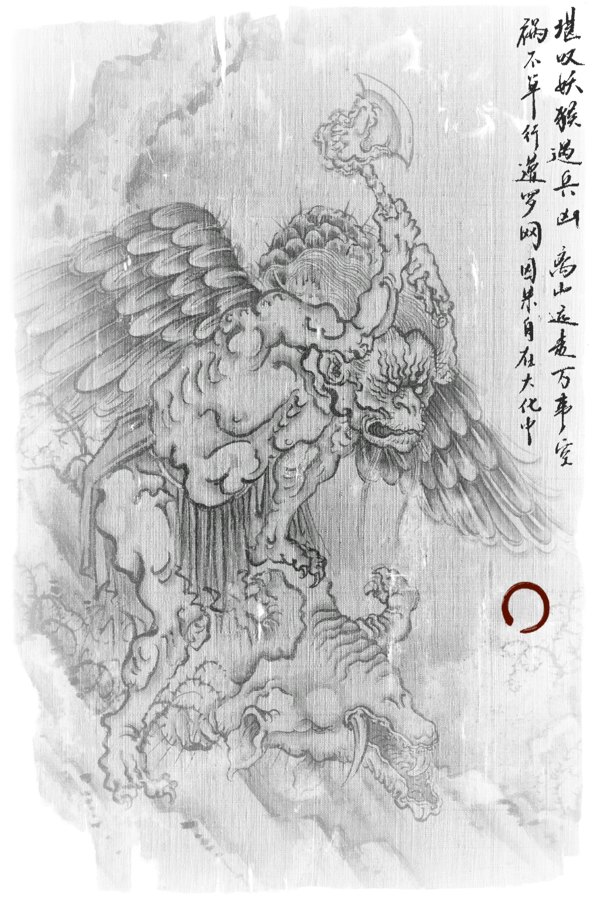 堪叹妖猴遇兵凶 离山远妻万事空
祸不单行遭罗网 因果自在大化中